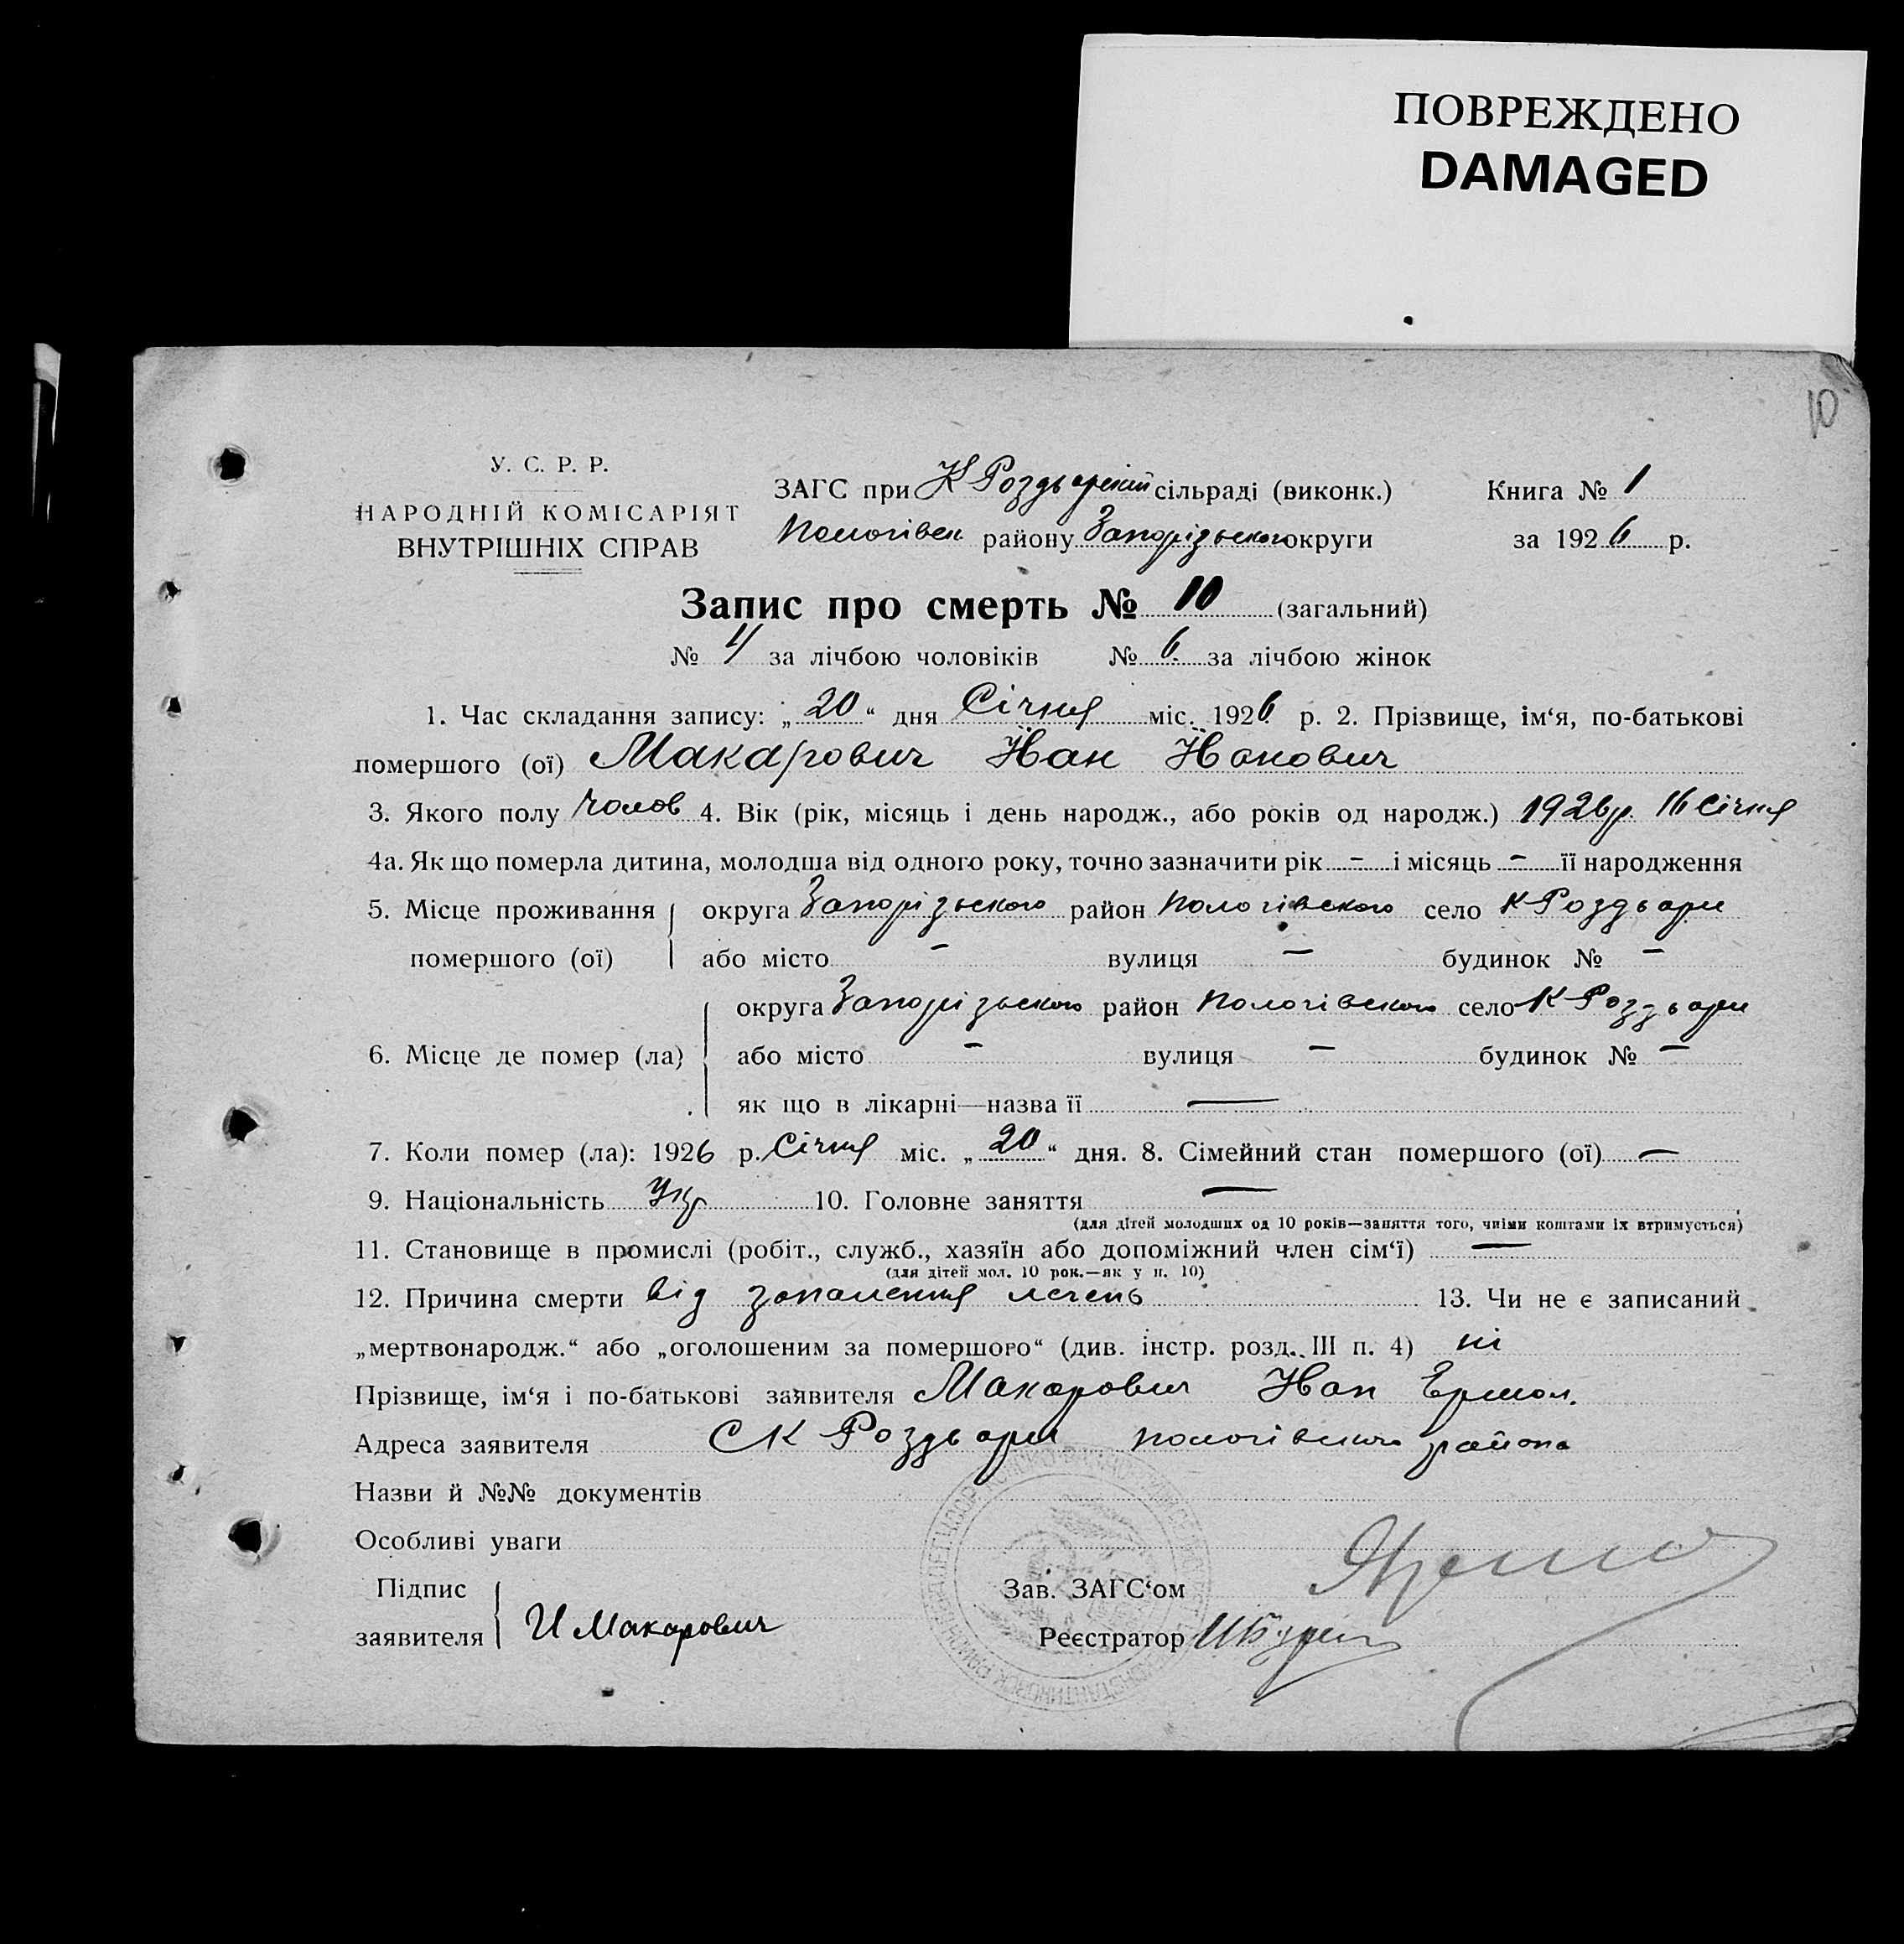 ПОВРЕЖДЕНО
DAMAGED
10
У. С. Р. Р.
НАРОДНІЙ КОМІСАРІЯТ
ВНУТРІШНІХ СПРАВ
ЗАГС при К Роздорській сільраді (виконк.)
Пологівськ району Запорізького округи
Книга № 1
за 1926 р.
Запис про смерть № 10 (загальний)
№ 4 за лічбою чоловіків № 6 за лічбою жінок
1. Час складання запису: „20“ дня Січня міс. 1926 р. 2. Прізвище, ім‘я, по-батькові
помершого (ої) Макарович Іван Іванович
3. Якого полу Чолов 4. Вік (рік, місяць і день народж., або років од народж.) 1926р. 16 Січня
4а. Як що померла дитина, молодша від одного року, точно зазначити рік – і місяць – її народження
5. Місце проживання помершого (ої) округа Запорізського район Пологівського село К Роздори
або місто – вулиця – будинок № –
6. Місце де помер (ла) округа Запорізського район Пологівського село К Роздори
або місто – вулиця – будинок № –
як що в лікарні—назва її —
7. Коли помер (ла): 1926 р. Січня міс. „20“ дня. 8. Сімейний стан помершого (ої) —
9. Національність Укр 10. Головне заняття —
(для дітей молодших од 10 років—заняття того, чиїми коштами їх втримується)
11. Становище в промислі (робіт., служб., хазяїн або допоміжний член сім‘ї) —
(для дітей мол. 10 рок.—як у п. 10)
12. Причина смерти від запалення легень 13. Чи не є записаний
„мертвонародж.“ або „оголошеним за помершого“ (див. інстр. розд. III п. 4) ні
Прізвище, ім‘я і по-батькові заявителя Макарович Іван Ермол.
Адреса заявителя С К Роздори пологівського района
Назви й №№ документів
Особливі уваги
Підпис заявителя И Макарович
Зав. ЗАГС‘ом
Реєстратор